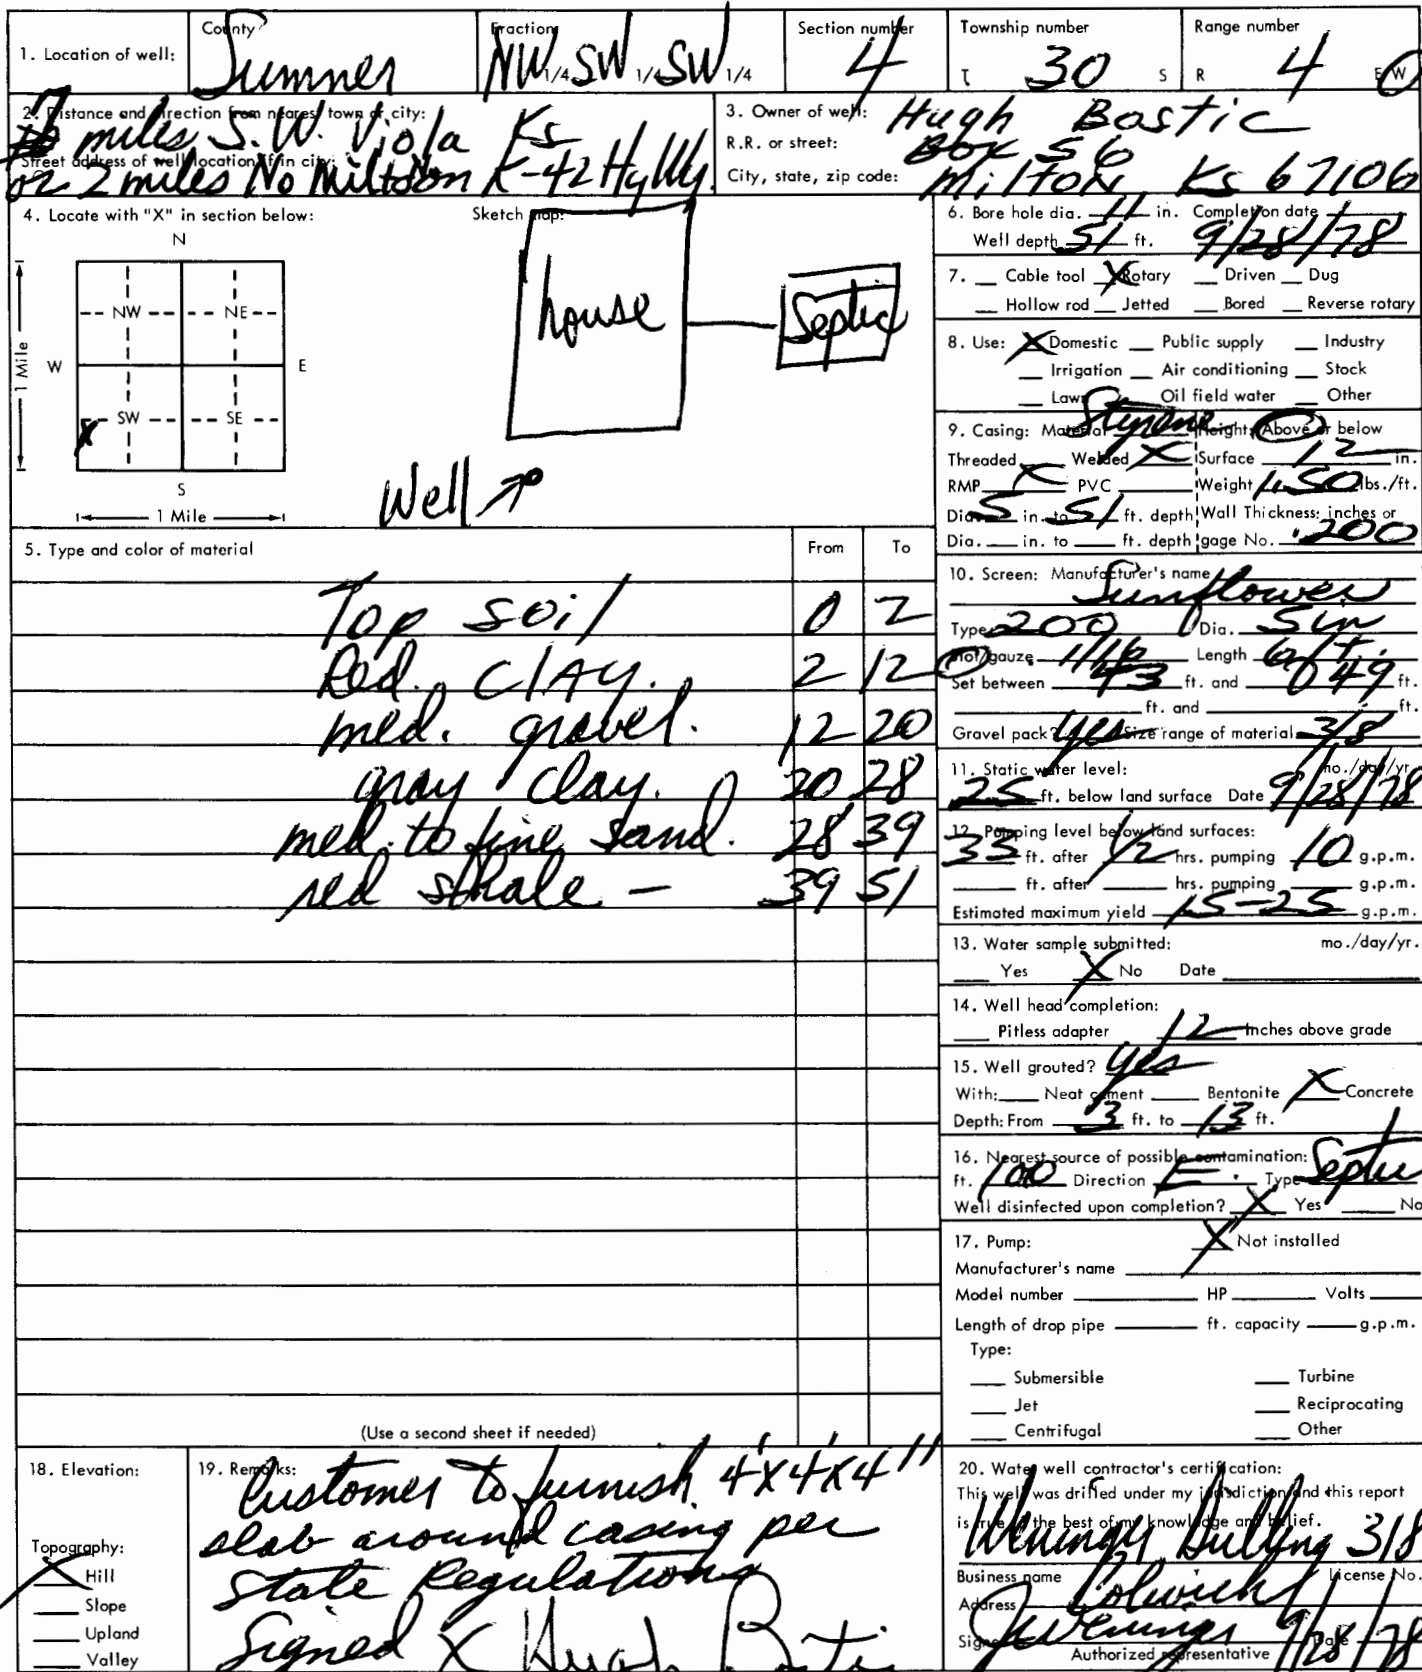 1. Location of well: County Sumner Fraction NW 1/4 SW 1/4 SW 1/4 Section number 4 Township number T 30 S Range number R 4 E W
2. Distance and direction from nearest town of city: 7 miles S.W. Viola Ks
Street address of well location if in city: or 2 miles No Miltoon K-42 HyWy.
3. Owner of well: Hugh Bostic
R.R. or street: Box 56
City, state, zip code: Milton, Ks 67106
4. Locate with "X" in section below: Sketch map:
N
NW NE
W E
SW SE
X
S
1 Mile
1 Mile
house
Septic
Well
5. Type and color of material From To
Top soil 0 2
Red. clay. 2 12
med. gravel. 12 20
gray clay. 20 28
med. to fine sand. 28 39
red shale — 39 51
(Use a second sheet if needed)
6. Bore hole dia. 11 in. Completion date
Well depth 51 ft. 9/28/78
7. Cable tool X Rotary Driven Dug
Hollow rod Jetted Bored Reverse rotary
8. Use: X Domestic Public supply Industry
Irrigation Air conditioning Stock
Lawn Oil field water Other
9. Casing: Material Styrene Height: Above or below
Threaded Welded X Surface 12 in.
RMP X PVC Weight 1.50 lbs./ft.
Dia. 5 in. to 51 ft. depth Wall Thickness: inches or
Dia. in. to ft. depth gage No. .200
10. Screen: Manufacturer's name
Sunflower
Type 200 Dia. 5in
Slot/gauze 1/16 Length 6 ft.
Set between 43 ft. and 49 ft.
ft. and ft.
Gravel pack? yes Size range of material 3/8
11. Static water level: mo./day/yr.
25 ft. below land surface Date 9/28/78
12. Pumping level below land surfaces:
33 ft. after 1/2 hrs. pumping 10 g.p.m.
ft. after hrs. pumping g.p.m.
Estimated maximum yield 15-25 g.p.m.
13. Water sample submitted: mo./day/yr.
Yes X No Date
14. Well head completion:
Pitless adapter 12 Inches above grade
15. Well grouted? yes
With: Neat cement Bentonite X Concrete
Depth: From 3 ft. to 13 ft.
16. Nearest source of possible contamination:
ft. 100 Direction E. Type Septic
Well disinfected upon completion? X Yes No
17. Pump: X Not installed
Manufacturer's name
Model number HP Volts
Length of drop pipe ft. capacity g.p.m.
Type:
Submersible Turbine
Jet Reciprocating
Centrifugal Other
18. Elevation:
Topography:
X Hill
Slope
Upland
Valley
19. Remarks:
Customer to furnish 4'x4'x4"
slab around casing per
State Regulations
Signed X Hugh Bostic
20. Water well contractor's certification:
This well was drilled under my jurisdiction and this report
is true to the best of my knowledge and belief.
Weninger Drilling 318
Business name License No.
Address Colwich
Signed J Weninger Date 9/28/78
Authorized representative